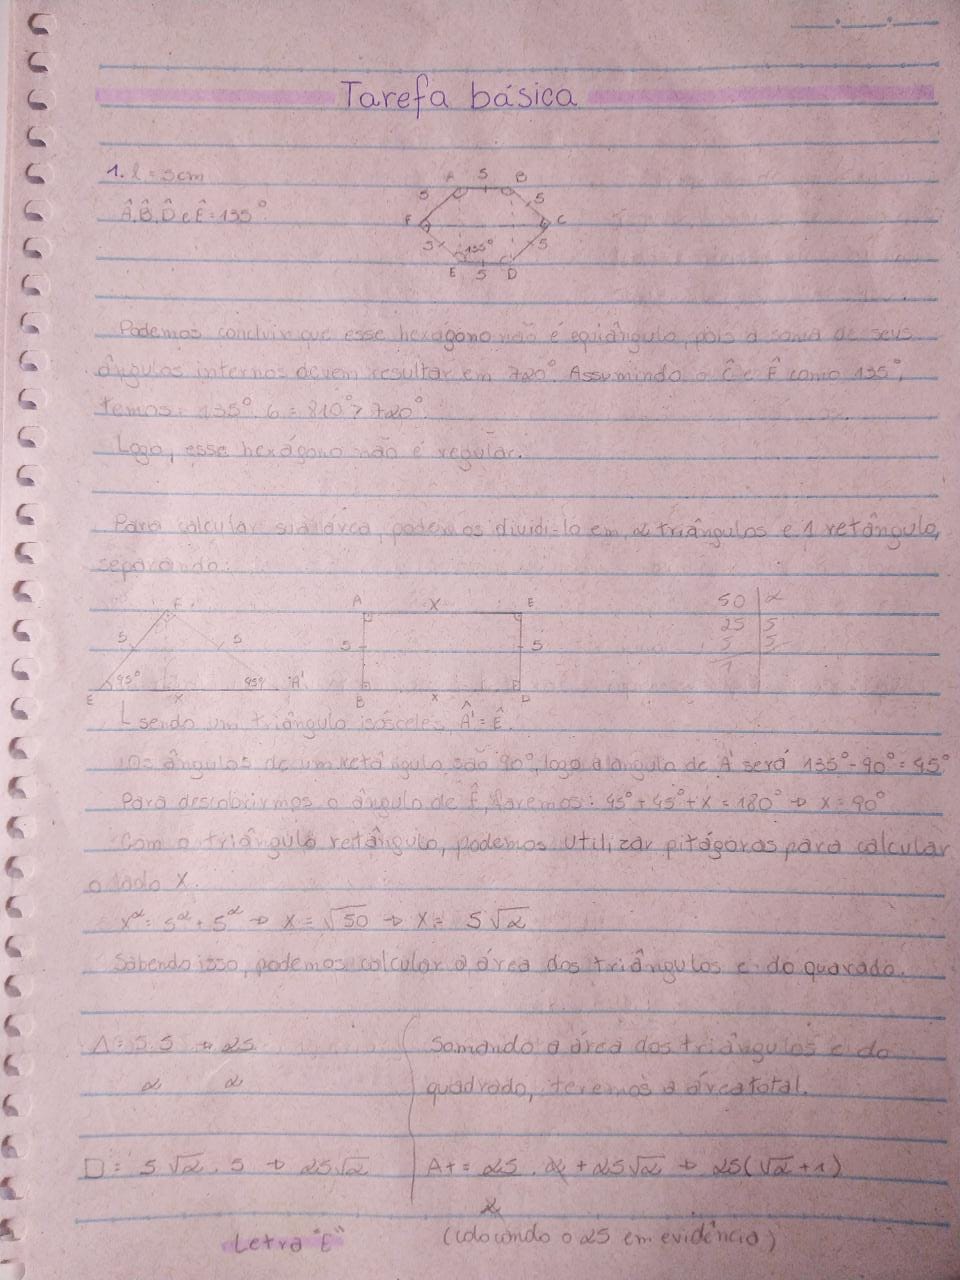 Tarefa básica
1. l = 5cm
Â, B̂, D̂ e Ê = 135°
A 5 B
5 5
F C
5 135° 5
E 5 D
Podemos concluir que esse hexágono não é equiângulo, pois a soma de seus
ângulos internos devem resultar em 720°. Assumindo o Ĉ e F̂ como 135°,
temos: 135°. 6 = 810° > 720°.
Logo, esse hexágono não é regular.
Para calcular sua área, podemos dividi-lo em 2 triângulos e 1 retângulo,
separando:
F A x E 50 2
5 5 5 5 25 5
5 5
1
45° 45° A'
E x B x D
sendo um triângulo isósceles, Â' = Ê.
Os ângulos de um retângulo são 90°, logo o ângulo de A' será 135° - 90° = 45°
Para descobrirmos o ângulo de F̂, faremos: 45° + 45° + x = 180° → x = 90°
Com o triângulo retângulo, podemos utilizar pitágoras para calcular
o lado x.
x² = 5² + 5² → x = √50 → x = 5√2
Sabendo isso, podemos calcular a área dos triângulos e do quadrado.
Δ = 5.5 → 25
2 2
Somando a área dos triângulos e do
quadrado, teremos a área total.
□ = 5√2 . 5 → 25√2
At = 25 . 2 + 25√2 → 25(√2 + 1)
2
Letra "E"
(colocando o 25 em evidência)